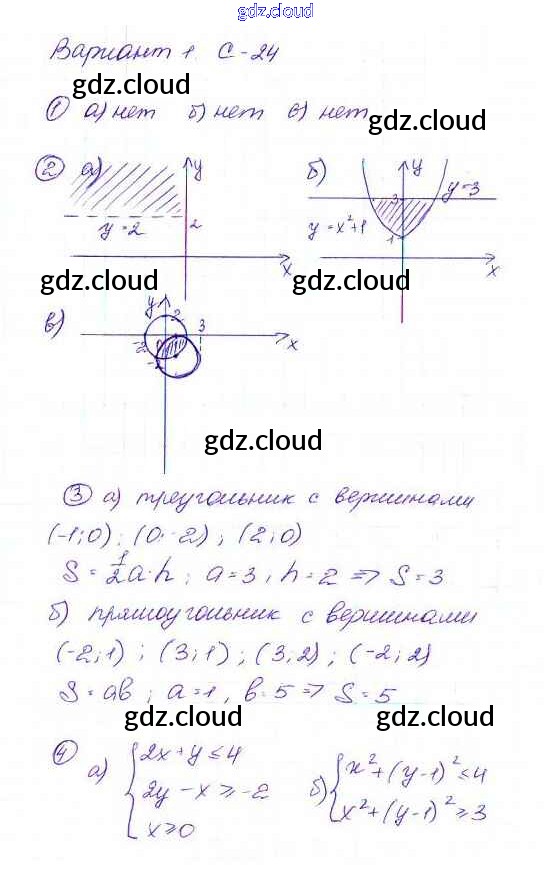 gdz.cloud
Вариант 1. С-24
gdz.cloud gdz.cloud
① а) нет б) нет в) нет
gdz.cloud
② а) y y = 2 2 x
б) y y = 3 3 y = x²+1 1 x
gdz.cloud gdz.cloud
в) y 2 3 -2 -2 x
gdz.cloud
③ а) треугольник с вершинами
(-1;0); (0;-2); (2;0)
S = 1/2 a·h; a = 3, h = 2 => S = 3
gdz.cloud gdz.cloud
б) прямоугольник с вершинами
(-2;1); (3;1); (3,2); (-2;2)
S = ab; a = 1, b = 5 => S = 5
gdz.cloud gdz.cloud
④ а) { 2x + y ≤ 4
2y - x ≥ -2
x ≥ 0
б) { x² + (y-1)² ≤ 4
x² + (y-1)² ≥ 3
gdz.cloud gdz.cloud